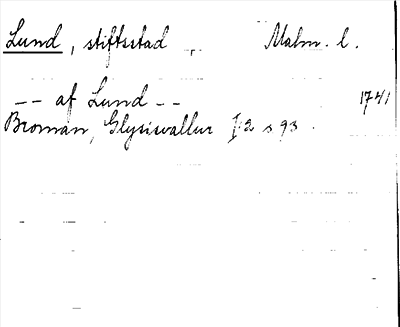 Lund, stiftsstad Malm. l.
-- af Lund -- 1741
Broman, Glysisvallur I:2 s 93.